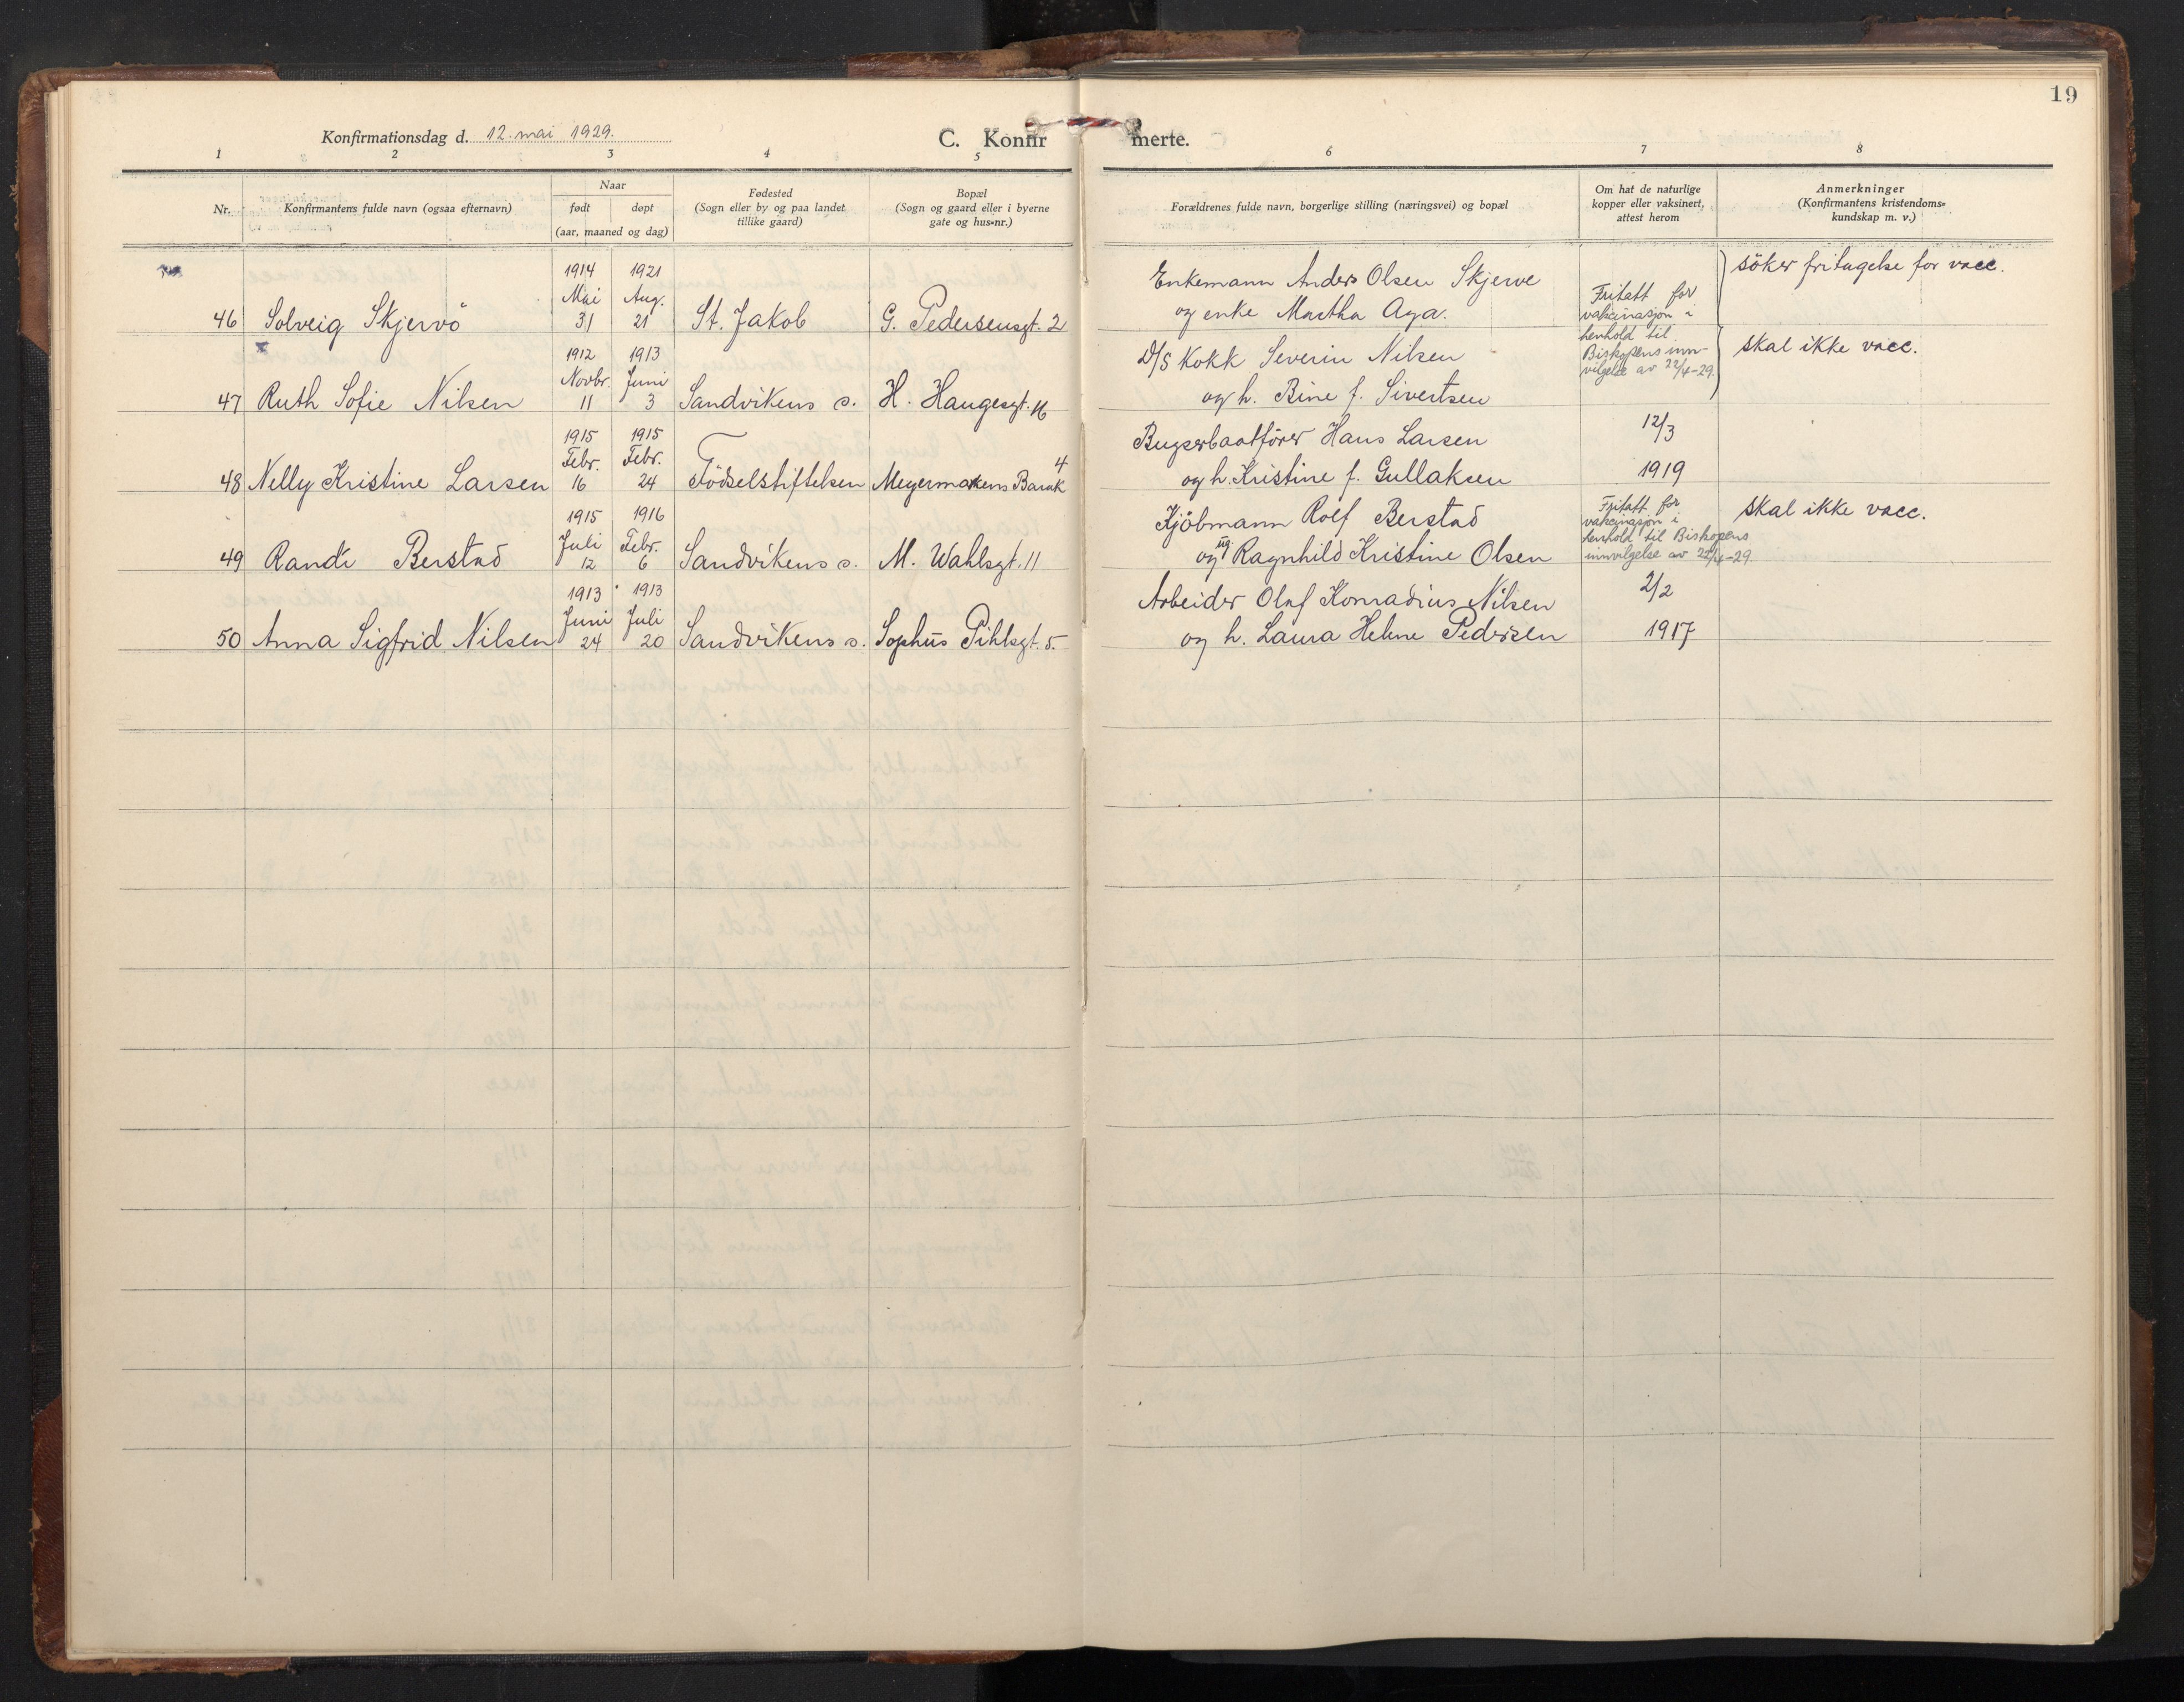 19
Konfirmationsdag d. 12. mai 1929.
C. Konfirmerte.
1 2 3 4 5 6 7 8
Nr.
Konfirmantens fulde navn (ogsaa efternavn)
Naar
født døpt
(aar, maaned og dag)
Fødested
(Sogn eller by og paa landet
tillike gaard)
Bopæl
(Sogn og gaard eller i byerne
gate og hus-nr.)
Forældrenes fulde navn, borgerlige stilling (næringsvei) og bopæl
Om hat de naturlige
kopper eller vaksinert,
attest herom
Anmerkninger
(Konfirmantens kristendoms=
kundskap m. v.)
1914 1921
Mai Aug.
46 Solveig Skjervö 31 21 St. Jakob G. Pedersensgt. 2
Enkemann Anders Olsen Skjerve
og enke Martha Aga.
Fritatt for
vakcinasjon i
henhold til
Biskopens inn-
vilgelse av 22/4-29.
söker fritagelse for vacc.
x
1912 1913
Novbr. Juni
47 Ruth Sofie Nilsen 11 3 Sandvikens s. H. Haugesgt. 16
D/S Kokk Severin Nilsen
og h. Bine f. Sivertsen
skal ikke vacc.
1915 1915
Febr. Febr.
48 Nelly Kristine Larsen 16 24 Födselstiftelsen Meyermarkens Barak 4
Bugserbaatförer Hans Larsen
og h. Kristine f. Gullaksen
12/3
1919
1915 1916
Juli Febr.
49 Randi Berstad 12 6 Sandvikens s. M. Wahlsgt. 11
Kjöbmann Rolf Berstad
og ug. Ragnhild Kristine Olsen
Fritatt for
vakcinasjon i
henhold til Biskopens
innvilgelse av 22/4-29.
skal ikke vacc.
1913 1913
Juni Juli
50 Anna Sigfrid Nilsen 24 20 Sandvikens s. Sophus Pihlsgt. 5.
Arbeider Olaf Konradius Nilsen
og h. Laura Helene Pedersen
2/2
1917